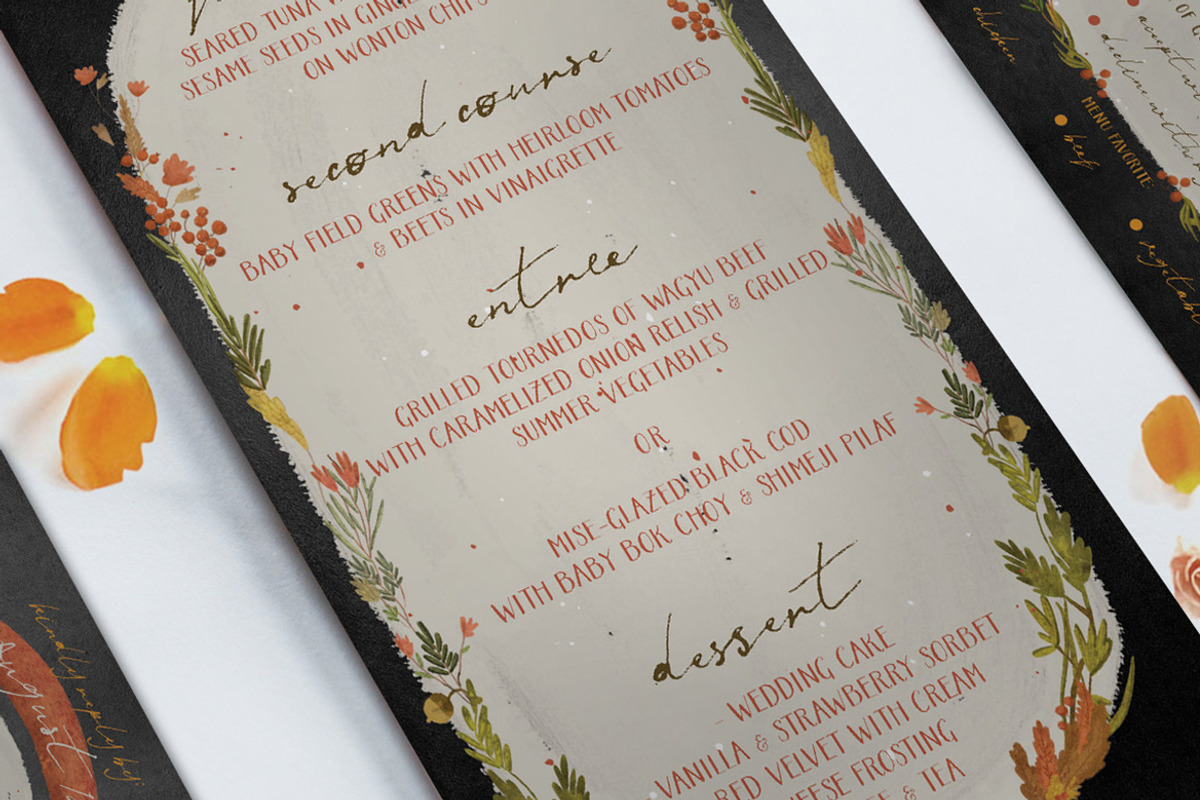 SEARED TUNA
SESAME SEEDS IN
ON WONTON CHIPS
second course
BABY FIELD GREENS WITH HEIRLOOM TOMATOES
& BEETS IN VINAIGRETTE
entree
GRILLED TOURNEDOS OF WAGYU BEEF
WITH CARAMELIZED ONION RELISH & GRILLED
SUMMER VEGETABLES
OR
MISE-GLAZED BLACK COD
WITH BABY BOK CHOY & SHIMEJI PILAF
dessert
WEDDING CAKE
VANILLA & STRAWBERRY SORBET
RED VELVET WITH CREAM
CHEESE FROSTING
& TEA
chicken
MENU FAVORITE:
beef
OF
kindly reply by:
August